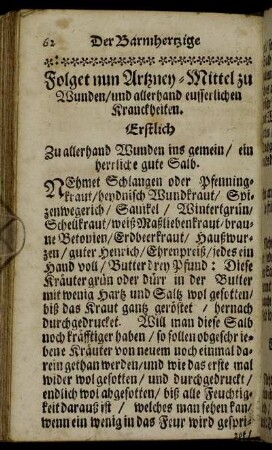 62 Der Barmhertzige
Folget nun Artzney-Mittel zu
Wunden/und allerhand eusserlichen
Kranckheiten.
Erstlich
Zu allerhand Wunden ins gemein/ ein
herrliche gute Salb.
NEhmet Schlangen oder Pfenning-
kraut/heydnisch Wundkraut/ Spi-
tzenwegerich/ Sanikel/ Wintertgrün/
Schelkraut/weiß Maßliebenkraut/brau-
ne Betonien/Erdbeerkraut/ Haußwur-
zen/guter Henrich/Ehrenpreiß/jedes ein
Hand voll/ Butter drey Pfund: Diese
Kräuter grün oder dürr in der Butter
mit wenig Hartz und Saltz wol gesotten/
biß das Kraut gantz geröstet/ hernach
durchgedrucket. Will man diese Salb
noch kräfftiger haben/ so sollen obgeschrie-
bene Kräuter von neuem noch einmal da-
rein gethan werden/und wie das erste mal
wider wol gesotten/ und durchgedruckt/
endlich wol abgesotten/ biß alle Feuchtig-
keit darauß ist/ welches man sehen kan/
wenn ein wenig in das Feur wird gespri-